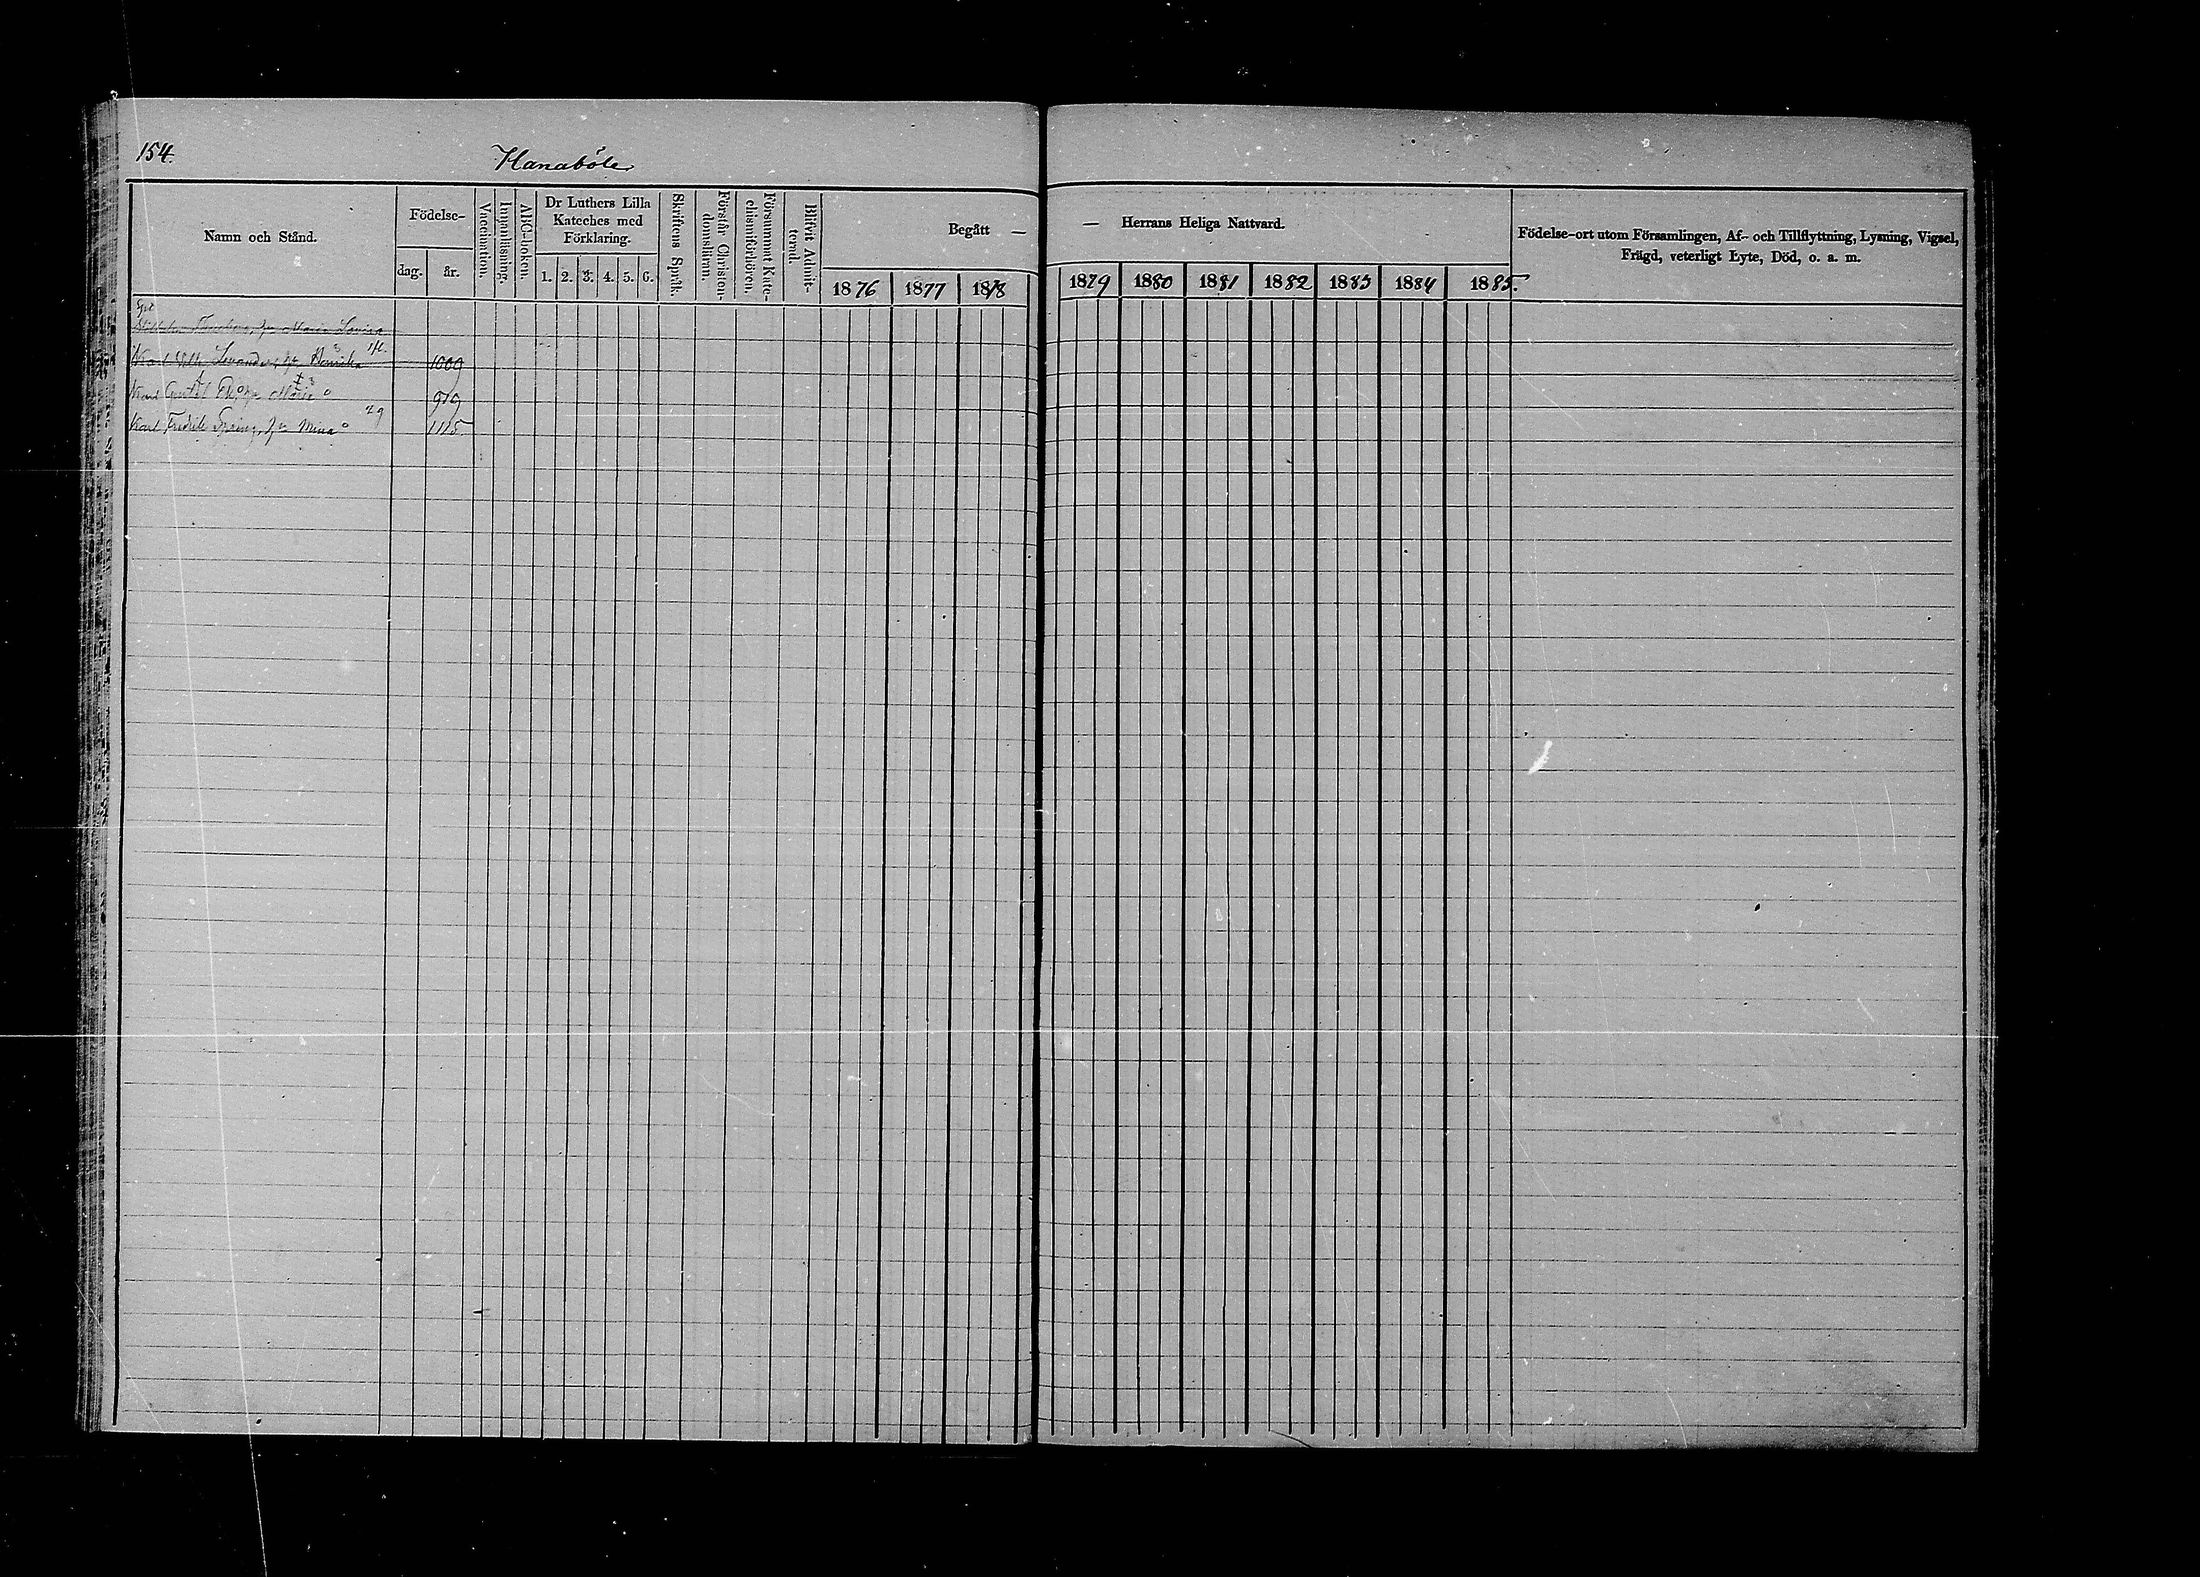 154.
Hanaböle
Namn och Stånd.
Födelse-
dag.
år.
Vaccination.
Innanläsning.
ABC-boken.
Dr Luthers Lilla
Kateches med
Förklaring.
1. 2. 3. 4. 5. 6.
Skriftens Språk.
Förstår Christen-
domsläran.
Försummat Kate-
chismiförhören.
Blifvit Admit-
terad.
Begått —
1876 1877 1878
— Herrans Heliga Nattvard.
1879 1880 1881 1882 1883 1884 1885.
Födelse-ort utom Församlingen, Af- och Tillflyttning, Lysning, Vigsel,
Frägd, veterligt Lyte, Död, o. a. m.
Maria Lovisa
Karl Levander, Henrika 1009
Karl Gustaf Maria 919
Karl Fredrik Spring, Mina 1115.